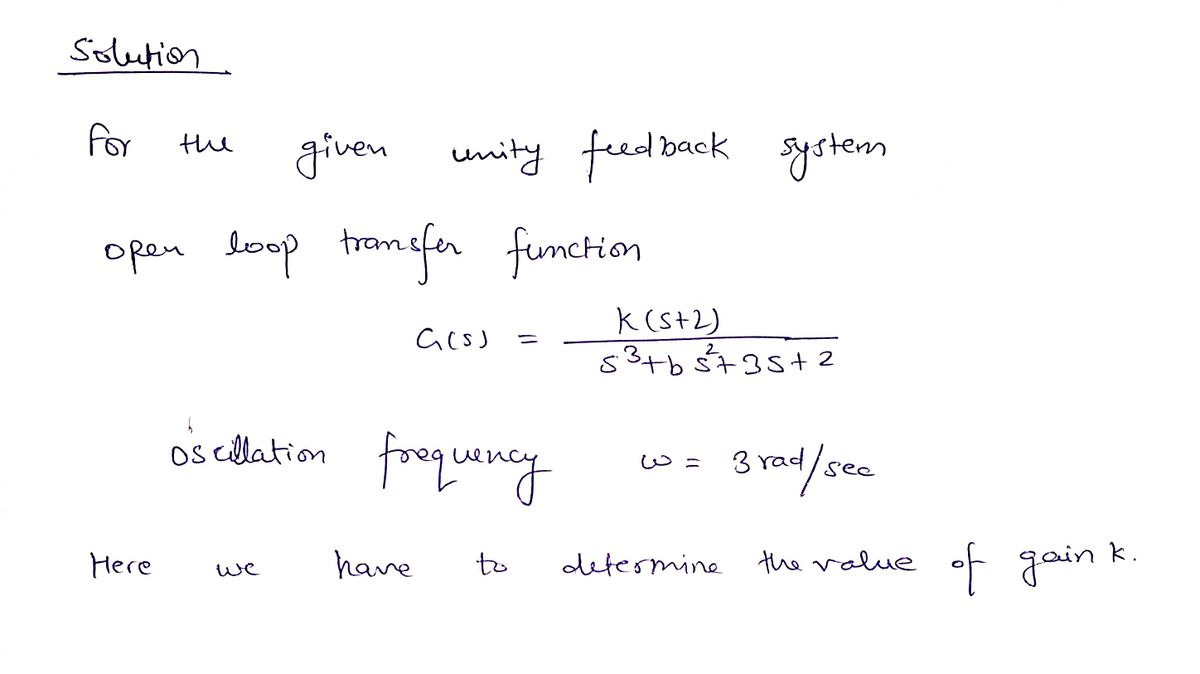 Solution
For the given unity feedback system
open loop transfer function
G(s) = K(s+2) / s³+bs²+3s+2
oscillation frequency ω = 3 rad/sec
Here we have to determine the value of gain k.